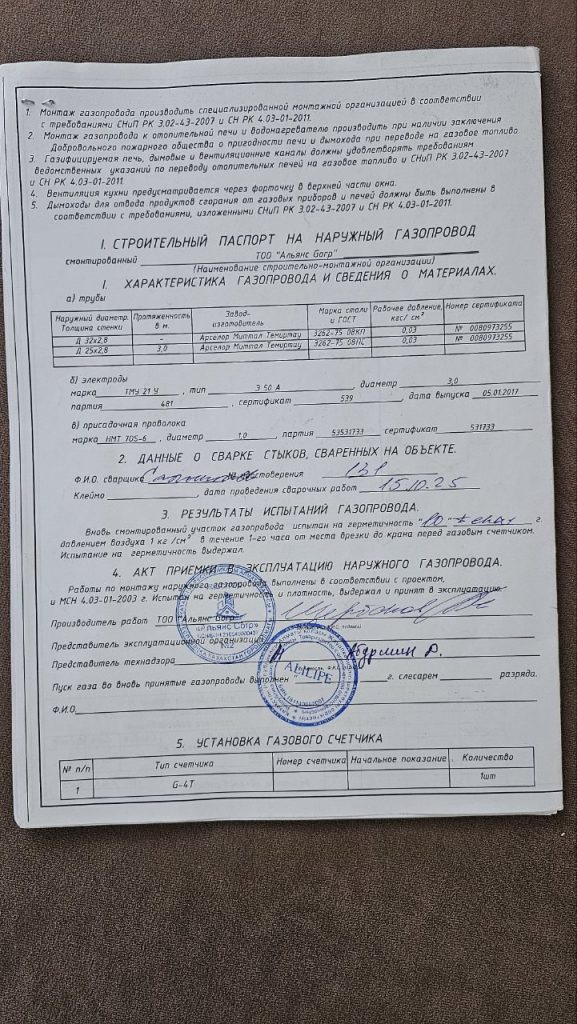 1. Монтаж газопровода производить специализированной монтажной организацией в соответствии
с требованиями СНиП РК 3.02-43-2007 и СН РК 4.03-01-2011.
2. Монтаж газопровода к отопительной печи и водонагревателю производить при наличии заключения
Добровольного пожарного общества о пригодности печи и дымохода при переводе на газовое топливо
3. Газифицируемая печь, дымовые и вентиляционные каналы должны удовлетворять требованиям
ведомственных указаний по переводу отопительных печей на газовое топливо и СНиП РК 3.02-43-2007
и СН РК 4.03-01-2011.
4. Вентиляция кухни предусматривается через форточку в верхней части окна.
5. Дымоходы для отвода продуктов сгорания от газовых приборов и печей должны быть выполнены в
соответствии с требованиями, изложенными СНиП РК 3.02-43-2007 и СН РК 4.03-01-2011.
I. СТРОИТЕЛЬНЫЙ ПАСПОРТ НА НАРУЖНЫЙ ГАЗОПРОВОД
смонтированный ТОО "Альянс Богр"
(Наименование строительно-монтажной организации)
I. ХАРАКТЕРИСТИКА ГАЗОПРОВОДА И СВЕДЕНИЯ О МАТЕРИАЛАХ.
а) трубы
Наружный диаметр. Толщина стенки Протяженность в м. Завод-изготовитель Марка стали и ГОСТ Рабочее давление, кгс/ см² Номер сертификата
Д 32х2,8 - Арселор Миттал Темиртау 3262-75 08КП 0,03 № 0080973255
Д 25х2,8 3,0 Арселор Миттал Темиртау 3262-75 08ПС 0,03 № 0080973255
б) электроды
марка ТМУ 21 У, тип Э 50 А, диаметр 3,0
партия 481, сертификат 539, дата выпуска 05.01.2017
в) присадочная проволока
марка НМТ 70S-6, диаметр 1,0, партия 53531733 сертификат 531733
2. ДАННЫЕ О СВАРКЕ СТЫКОВ, СВАРЕННЫХ НА ОБЪЕКТЕ.
Ф.И.О. сварщика № удостоверения
Клеймо , дата проведения сварочных работ 15.10.25
3. РЕЗУЛЬТАТЫ ИСПЫТАНИЙ ГАЗОПРОВОДА.
Вновь смонтированный участок газопровода испытан на герметичность г.
давлением воздуха 1 кг /см² в течение 1-го часа от места врезки до крана перед газовым счетчиком.
Испытание на герметичность выдержал.
4. АКТ ПРИЕМКИ В ЭКСПЛУАТАЦИЮ НАРУЖНОГО ГАЗОПРОВОДА.
Работы по монтажу наружного газопровода выполнены в соответствии с проектом,
и МСН 4.03-01-2003 г. Испытан на герметичность и плотность, выдержал и принят в эксплуатацию.
Производитель работ ТОО "Альянс Богр"
Представитель эксплуатационной организации
Представитель технадзора
Пуск газа во вновь принятые газопроводы выполнен г. слесарем разряда.
Ф.И.О.
5. УСТАНОВКА ГАЗОВОГО СЧЕТЧИКА
№ п/п Тип счетчика Номер счетчика Начальное показание Количество
1 G-4T 1шт